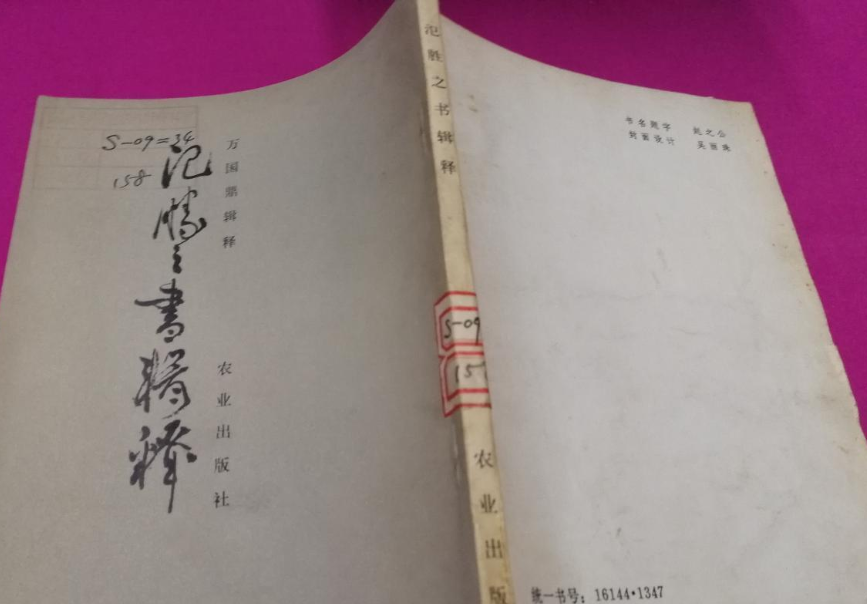 S-09=34
158
氾勝之書輯釋
万国鼎辑释
农业出版社
氾胜之书辑释
S-09
15
农业出版
书名题字 赵之公
封面设计 吴丽珠
统一书号：16144·1347